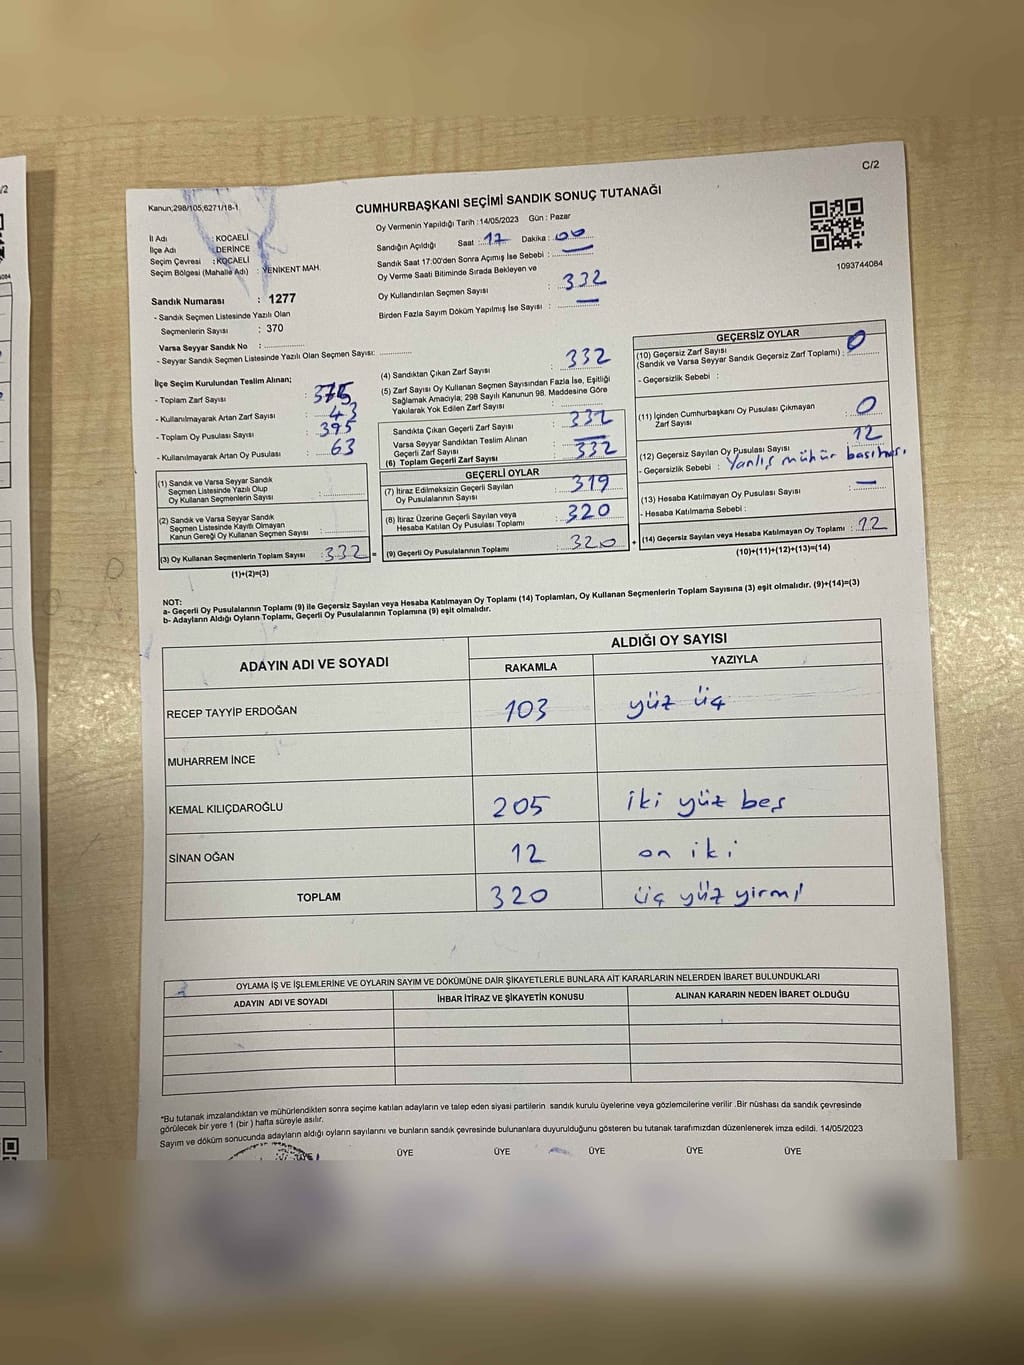 C/2
Kanun;298/105;6271/18-1
CUMHURBAŞKANI SEÇİMİ SANDIK SONUÇ TUTANAĞI
1093744084
İl Adı : KOCAELİ
İlçe Adı : DERİNCE
Seçim Çevresi : KOCAELİ
Seçim Bölgesi (Mahalle Adı) : YENİKENT MAH.
Sandık Numarası : 1277
- Sandık Seçmen Listesinde Yazılı Olan
Seçmenlerin Sayısı : 370
Varsa Seyyar Sandık No :
- Seyyar Sandık Seçmen Listesinde Yazılı Olan Seçmen Sayısı:
Oy Vermenin Yapıldığı Tarih : 14/05/2023 Gün : Pazar
Sandığın Açıldığı Saat : 17 Dakika : 00
Sandık Saat 17:00'den Sonra Açımış İse Sebebi : —
Oy Verme Saati Bitiminde Sırada Bekleyen ve
Oy Kullandırılan Seçmen Sayısı : 332
Birden Fazla Sayım Döküm Yapılmış İse Sayısı : —
İlçe Seçim Kurulundan Teslim Alınan;
- Toplam Zarf Sayısı : 375
- Kullanılmayarak Artan Zarf Sayısı : 43
- Toplam Oy Pusulası Sayısı : 395
- Kullanılmayarak Artan Oy Pusulası : 63
(1) Sandık ve Varsa Seyyar Sandık
Seçmen Listesinde Yazılı Olup
Oy Kullanan Seçmenlerin Sayısı :
(2) Sandık ve Varsa Seyyar Sandık
Seçmen Listesinde Kayıtlı Olmayan
Kanun Gereği Oy Kullanan Seçmen Sayısı :
(3) Oy Kullanan Seçmenlerin Toplam Sayısı : 332 =
(1)+(2)=(3)
(4) Sandıktan Çıkan Zarf Sayısı : 332
(5) Zarf Sayısı Oy Kullanan Seçmen Sayısından Fazla İse, Eşitliği
Sağlamak Amacıyla; 298 Sayılı Kanunun 98. Maddesine Göre
Yakılarak Yok Edilen Zarf Sayısı :
Sandıkta Çıkan Geçerli Zarf Sayısı : 332
Varsa Seyyar Sandıktan Teslim Alınan
Geçerli Zarf Sayısı : —
(6) Toplam Geçerli Zarf Sayısı : 332
GEÇERLİ OYLAR
(7) İtiraz Edilmeksizin Geçerli Sayılan
Oy Pusulalarının Sayısı : 319
(8) İtiraz Üzerine Geçerli Sayılan veya
Hesaba Katılan Oy Pusulası Toplamı : 320
(9) Geçerli Oy Pusulalarının Toplamı : 320 +
GEÇERSİZ OYLAR
(10) Geçersiz Zarf Sayısı
(Sandık ve Varsa Seyyar Sandık Geçersiz Zarf Toplamı) : 0
- Geçersizlik Sebebi :
(11) İçinden Cumhurbaşkanı Oy Pusulası Çıkmayan
Zarf Sayısı : 0
(12) Geçersiz Sayılan Oy Pusulası Sayısı : 12
- Geçersizlik Sebebi : Yanlış mühür basılması
(13) Hesaba Katılmayan Oy Pusulası Sayısı : —
- Hesaba Katılmama Sebebi :
(14) Geçersiz Sayılan veya Hesaba Katılmayan Oy Toplamı : 12
(10)+(11)+(12)+(13)=(14)
NOT:
a- Geçerli Oy Pusulalarının Toplamı (9) ile Geçersiz Sayılan veya Hesaba Katılmayan Oy Toplamı (14) Toplamları, Oy Kullanan Seçmenlerin Toplam Sayısına (3) eşit olmalıdır. (9)+(14)=(3)
b- Adayların Aldığı Oyların Toplamı, Geçerli Oy Pusulalarının Toplamına (9) eşit olmalıdır.
ADAYIN ADI VE SOYADI ALDIĞI OY SAYISI
RAKAMLA YAZIYLA
RECEP TAYYİP ERDOĞAN 103 yüz üç
MUHARREM İNCE
KEMAL KILIÇDAROĞLU 205 iki yüz beş
SİNAN OĞAN 12 on iki
TOPLAM 320 üç yüz yirmi
OYLAMA İŞ VE İŞLEMLERİNE VE OYLARIN SAYIM VE DÖKÜMÜNE DAİR ŞİKAYETLERLE BUNLARA AİT KARARLARIN NELERDEN İBARET BULUNDUKLARI
ADAYIN ADI VE SOYADI İHBAR İTİRAZ VE ŞİKAYETİN KONUSU ALINAN KARARIN NEDEN İBARET OLDUĞU
*Bu tutanak imzalandıktan ve mühürlendikten sonra seçime katılan adayların ve talep eden siyasi partilerin sandık kurulu üyelerine veya gözlemcilerine verilir .Bir nüshası da sandık çevresinde
görülecek bir yere 1 (bir ) hafta süreyle asılır.
Sayım ve döküm sonucunda adayların aldığı oyların sayılarını ve bunların sandık çevresinde bulunanlara duyurulduğunu gösteren bu tutanak tarafımızdan düzenlenerek imza edildi. 14/05/2023
ÜYE ÜYE ÜYE ÜYE ÜYE